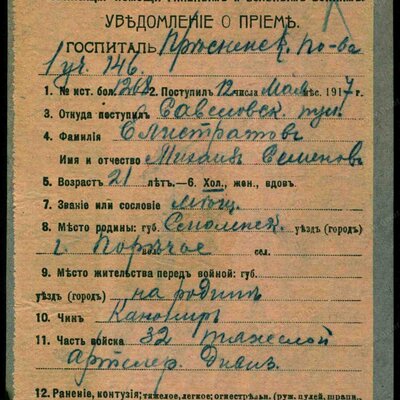 УВѢДОМЛЕНІЕ О ПРІЕМѢ.
ГОСПИТАЛЬ Прѣсненск. По-ва
1 уч. 146.
1. № ист. бол. 268 2. Поступил 12 числа Мая мѣс. 1917 г.
3. Откуда поступил Савеловск. пун.
4. Фамилія Елистратовъ
Имя и отчество Михаилъ Семеновъ
5. Возраст 21 лѣт.—6. Хол., жен., вдов.
7. Званіе или сословіе мѣщ.
8. Мѣсто родины: губ. Смоленск. уѣзд (городъ)
г. Порѣчье сел.
9. Мѣсто жительства передъ войной: губ.
уѣзд (город) на родинѣ
10. Чин Канонир
11. Часть войска 32 тяжелой
артилер. Дивиз.
12. Раненіе, контузія; тяжелое, легкое; огнестрѣльн. (руж. пулей, шрапн.,